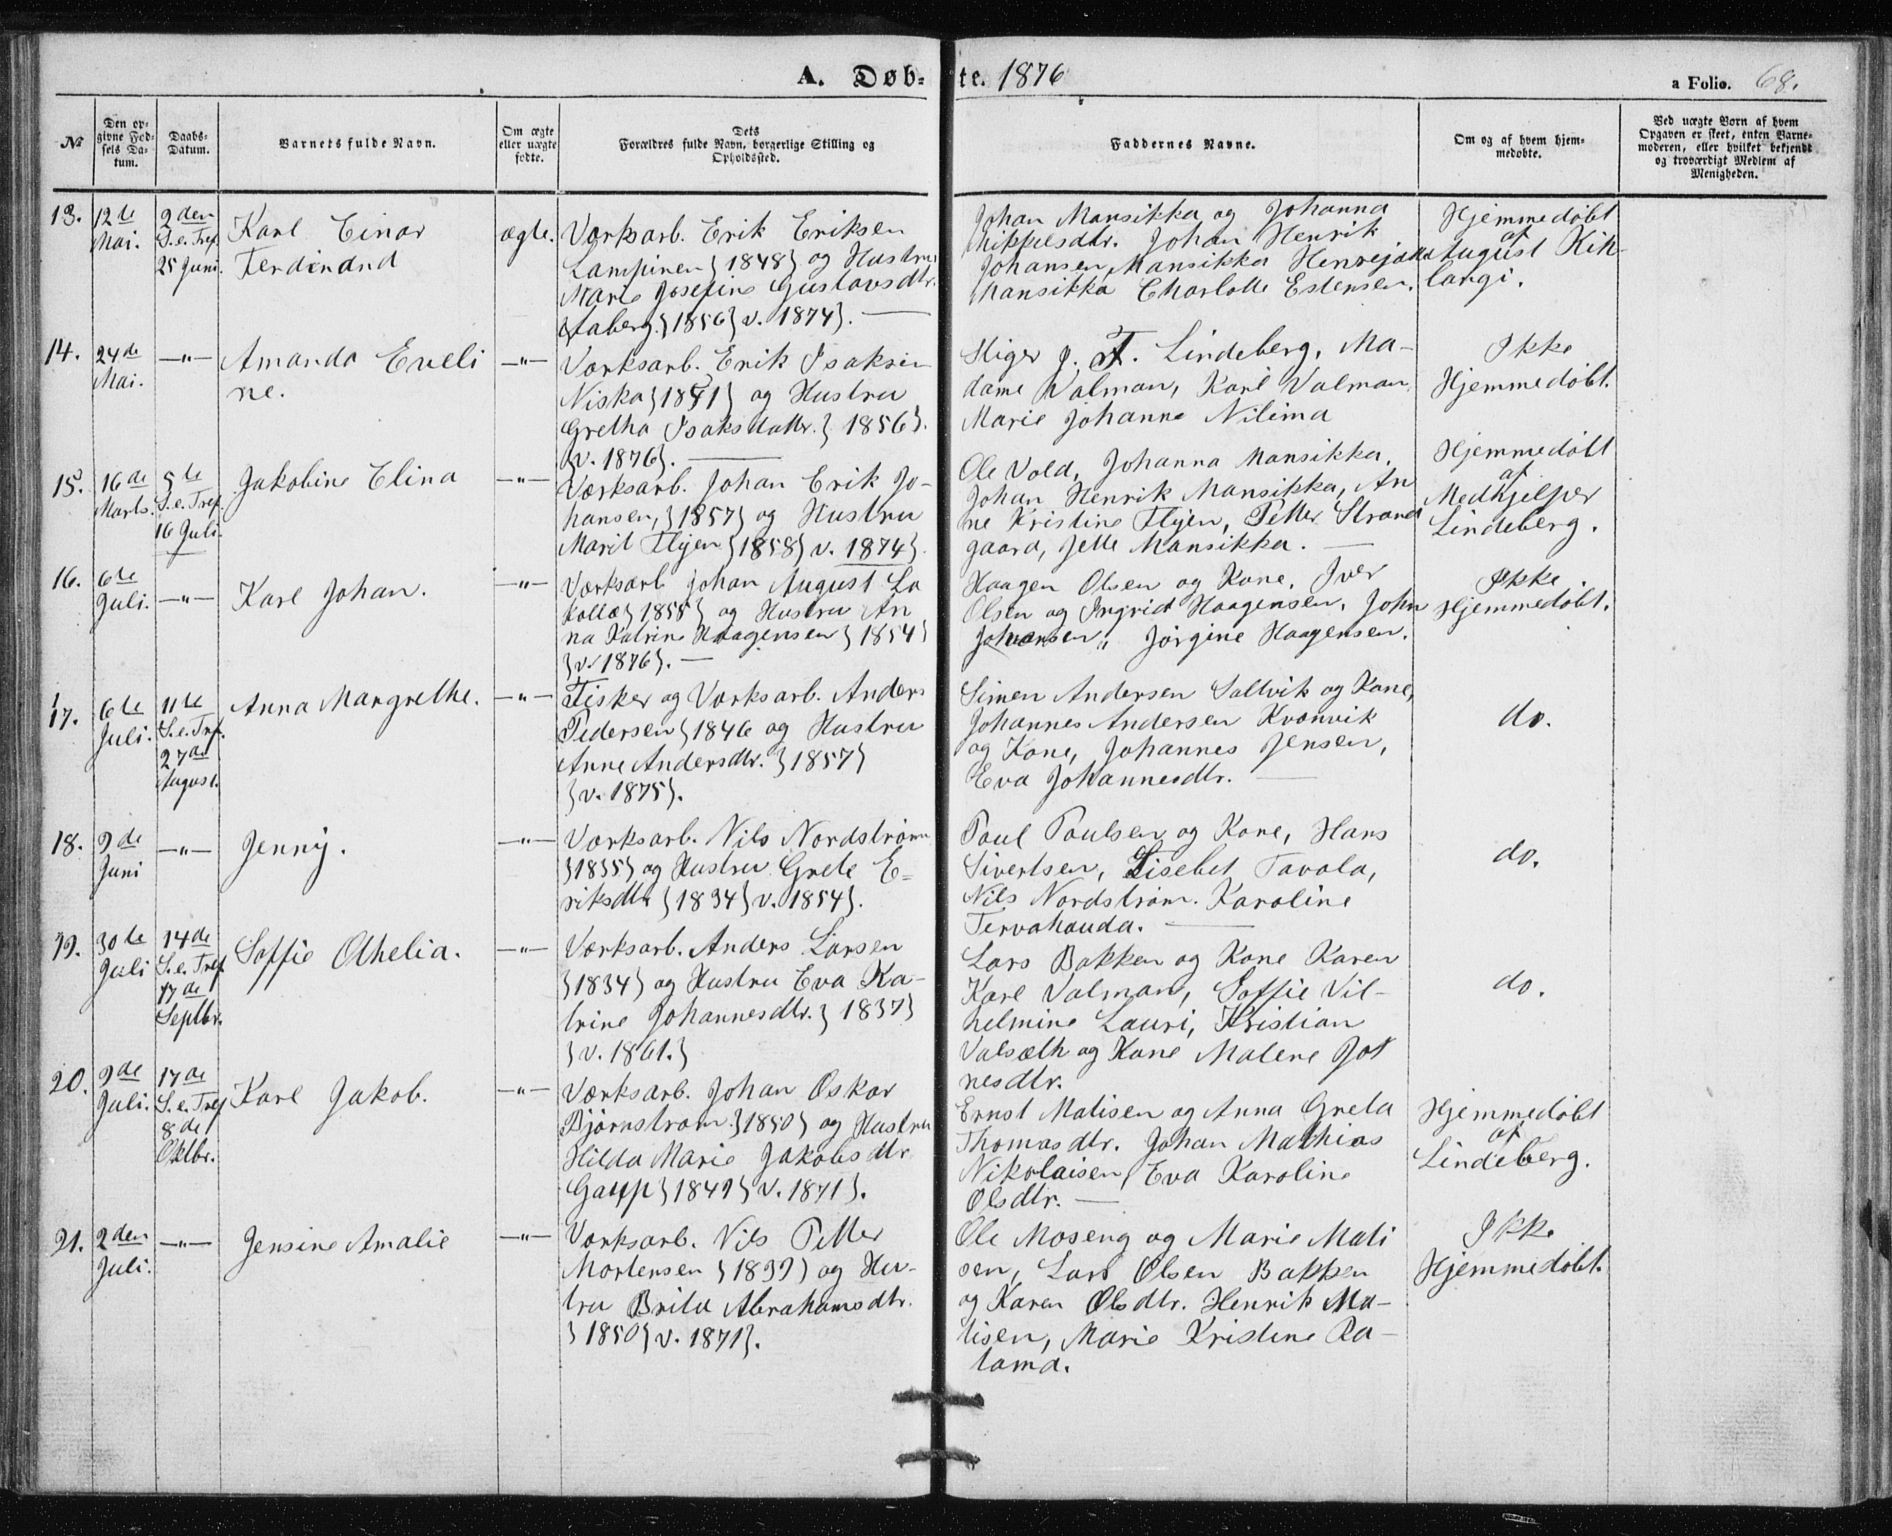 A. Døb-te. 1876
a Folio. 68.
№
Den opgivne Fødsels Datum.
Daabs-Datum.
Barnets fulde Navn.
Om ægte eller uægte fødte.
Dets Forældres fulde Navn, borgerlige Stilling og Opholdssted.
Faddernes Navne.
Om og af hvem hjemmedøbte.
Ved uægte Børn af hvem Opgaven er skeet, enten Barnemoderen, eller hvilket bekjendt og troværdigt Medlem af Menigheden.
13. 12te Mai. 2den S. e. Tref. 25 Juni.
Karl Einar
Ferdinand
ægte.
Værksarb. Erik Eriksen
Lampinen } 1848 } og Hustru
Marie Josefine Gustavsdtr.
} 1856 } v. 1874 }.
Johan Mansikka og Johanna
Mikkelsdtr. Johan Henrik
Johansen Mansikka
Mansikka Charlotte Estensen.
Hjemmedøbt
af
August Kih-
langi.
14. 24de Mai. —"—
Amanda Eveli
ne.
—"—
Værksarb. Erik Isaksen
Niska } 1851 } og Hustru
Gretha Isaksdattr. } 1856 }.
} v. 1876 }.
Stiger J. F. Lindeberg, Ma-
dame Valman, Karl Valman
Marie Johanne Nilima
Ikke
Hjemmedøbt.
15. 16de Marts. 5te S. e. Tref. 16 Juli.
Jakobine Elina
—"—
Værksarb. Johan Erik Jo-
hansen, } 1857 } og Hustru
Marit Flyen } 1858 } v. 1874 }.
Ole Vold, Johanna Mansikka,
Johan Henrik Mansikka, An
ne Kristine Flyen, Petter Strand
gaard, Jette Mansikka.
Hjemmedøbt
af
Medhjelper
Lindeberg.
16. 6te Juli. —"—
Karl Johan.
—"—
Værksarb. Johan August La
kolla } 1855 } og Hustru An
na Katrine Haagensen } 1854 }
} v. 1876 }.
Haagen Olsen og Kone, Iver
Olsen og Ingrid Haagensen, John
Johansen, Jørgine Haagensen.
Ikke
Hjemmedøbt.
17. 6te Juli. 11te S. e. Tref. 27de August.
Anna Margrethe.
—"—
Fisker og Værksarb. Anders
Pedersen } 1846 og Hustru
Anne Andersdtr. } 1857 }
} v. 1875 }.
Simen Andersen Saltvik og Kone,
Johannes Andersen Kvænvik
og Kone, Johannes Jensen,
Eva Johannesdtr.
do.
18. 9de Juni —"—
Jenny.
—"—
Værksarb. Nils Nordstrøm
} 1835 } og Hustru Grete E-
riksdtr } 1834 } v. 1854 }.
Paul Paulsen og Kone, Hans
Sivertsen, Lisebet Tavola,
Nils Nordstrøm. Karoline
Tervahauda.
do.
19. 30te Juli 14de S. e. Tref 17de Septbr.
Soffie Othelia.
—"—
Værksarb. Anders Larsen
} 1834 } og Hustru Eva Ka-
trine Johannesdtr. } 1837 }
} v. 1861. }
Lars Bakken og Kone Karen
Karl Valman, Soffie Vil-
helmine Lauri, Kristian
Valsæth og Kone Malene Jo
nesdtr.
do.
20. 9de Juli. 17de S. e. Tref 8de Oktbr.
Karl Jakob.
—"—
Værksarb. Johan Oskar
Bjørnstrøm } 1850 } og Hustru
Hilda Marie Jakobsdtr
Gaupp } 1849 } v. 1871 }.
Ernst Matisen og Anna Greta
Thomasdtr. Johan Mathias
Nikolaisen, Eva Karoline
Olsdtr.
Hjemmedøbt
af
Lindeberg.
21. 2den Juli. —"—
Jensine Amalie
—"—
Værksarb. Nils Petter
Mortensen } 1839 } og Hu-
tru Brita Abrahamsdtr.
} 1850 } v. 1871 }.
Ole Moseng og Marie Mati
sen, Lars Olsen Bakken
og Karen Olsdtr. Henrik Ma-
tisen, Marie Kristine Ra-
tama.
Ikke
Hjemmedøbt.